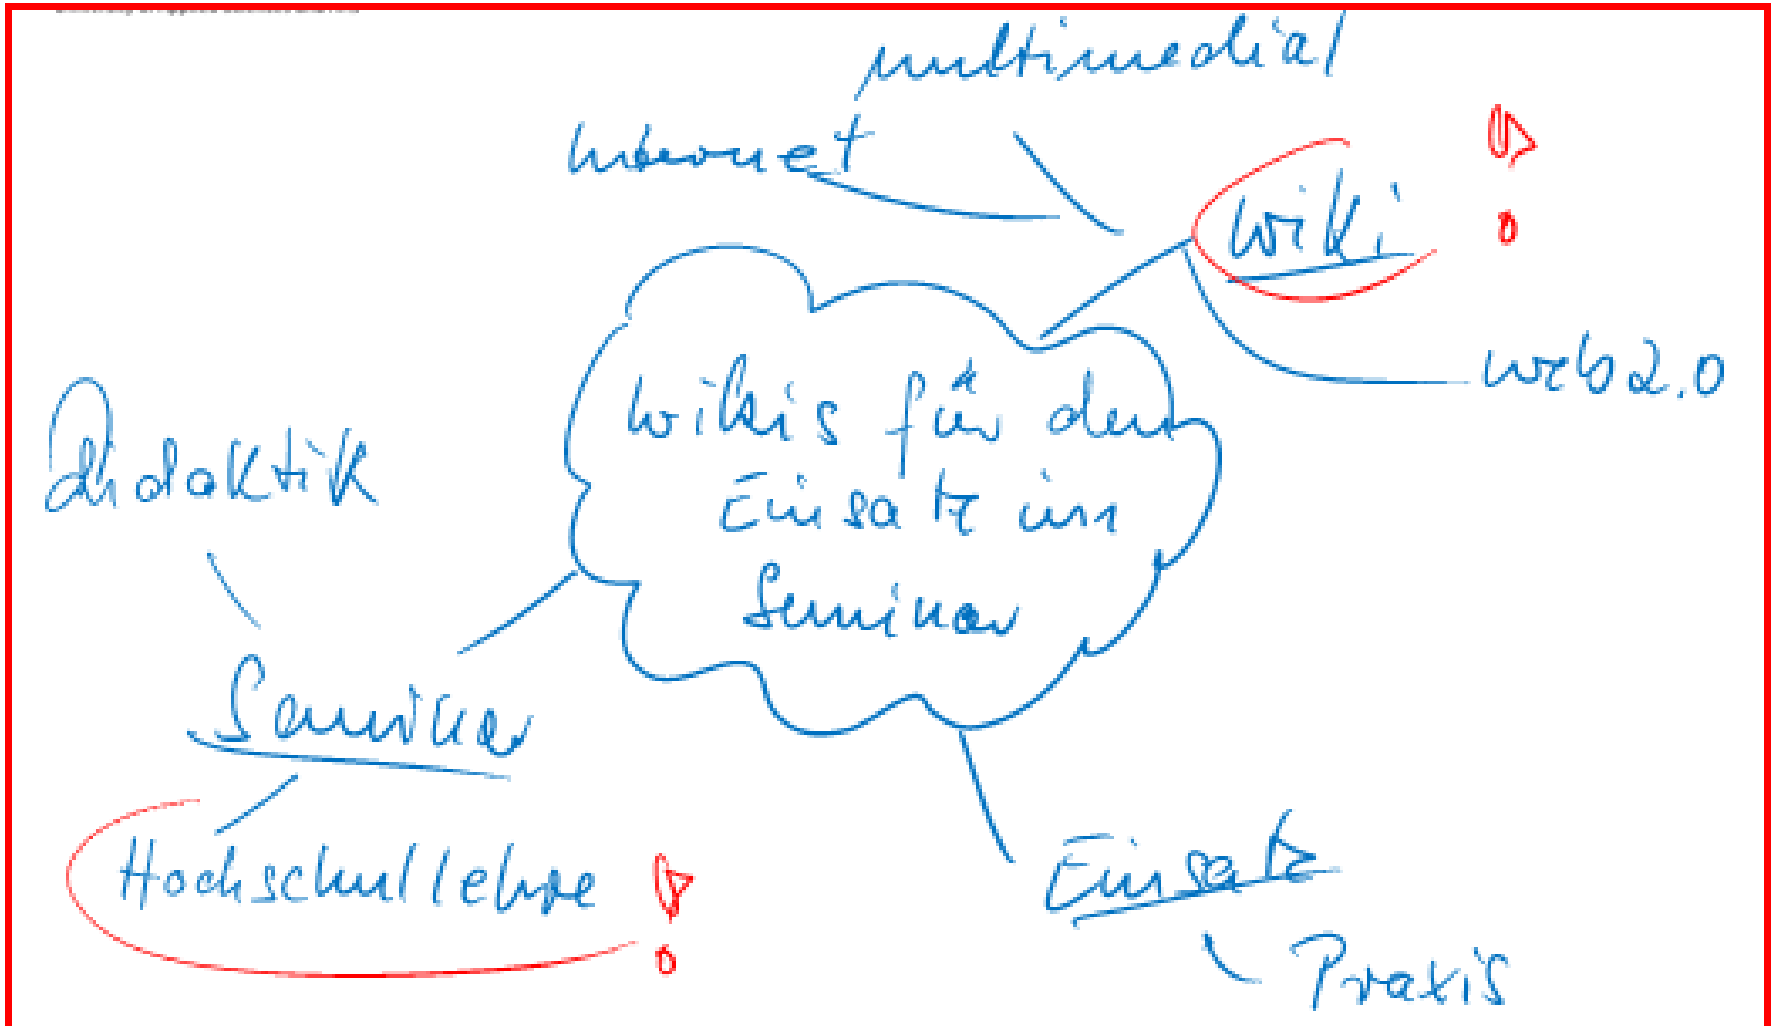 multimedial
Internet
wiki
web2.0
wikis für den
Einsatz im
Seminar
Didaktik
Seminar
Hochschullehre
Einsatz
Praxis